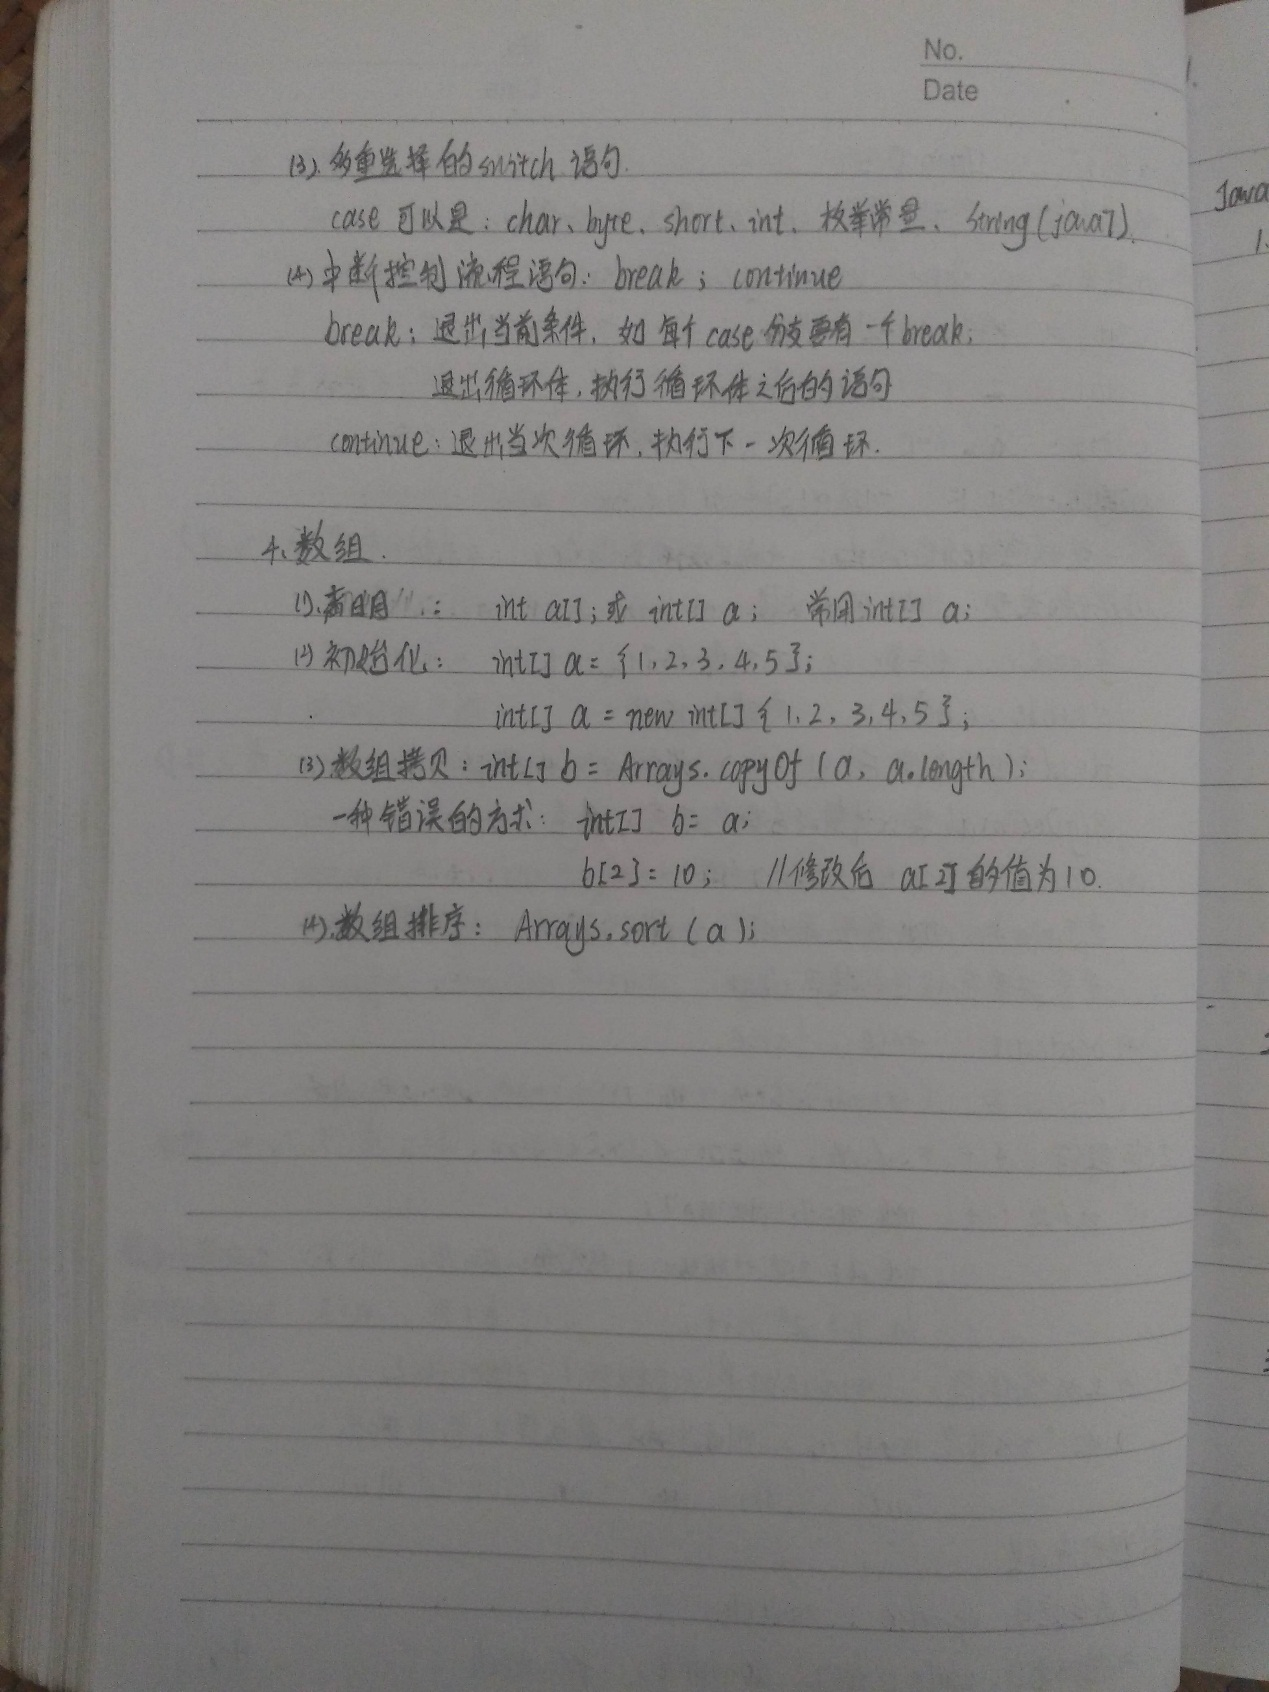 No.
Date
(3). 多重选择的switch 语句.
case 可以是：char、byte、short、int、枚举常量、String(java7).
(4) 中断控制流程语句：break；continue
break：退出当前条件，如 每个case分支要有一个break；
退出循环体，执行循环体之后的语句
continue：退出当次循环，执行下一次循环.
4、数组.
(1). 声明：int a[]; 或 int[] a; 常用int[] a;
(2) 初始化：int[] a = {1, 2, 3, 4, 5};
int[] a = new int[] {1, 2, 3, 4, 5};
(3) 数组拷贝：int[] b = Arrays.copyOf (a, a.length);
一种错误的方式：int[] b = a;
b[2] = 10; //修改后 a[2]的值为10.
(4). 数组排序：Arrays.sort (a);
Java
1.